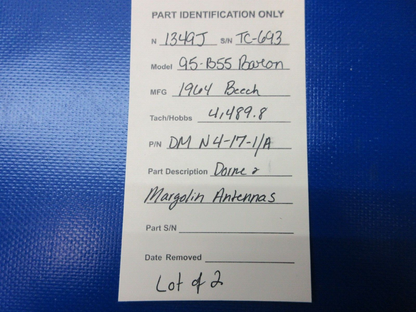 PART IDENTIFICATION ONLY
N 1349J S/N TC-693
Model 95-B55 Baron
MFG 1964 Beech
Tach/Hobbs 4,489.8
P/N DM N4-17-1/A
Part Description Dorne &
Margolin Antennas
Part S/N
Date Removed
Lot of 2